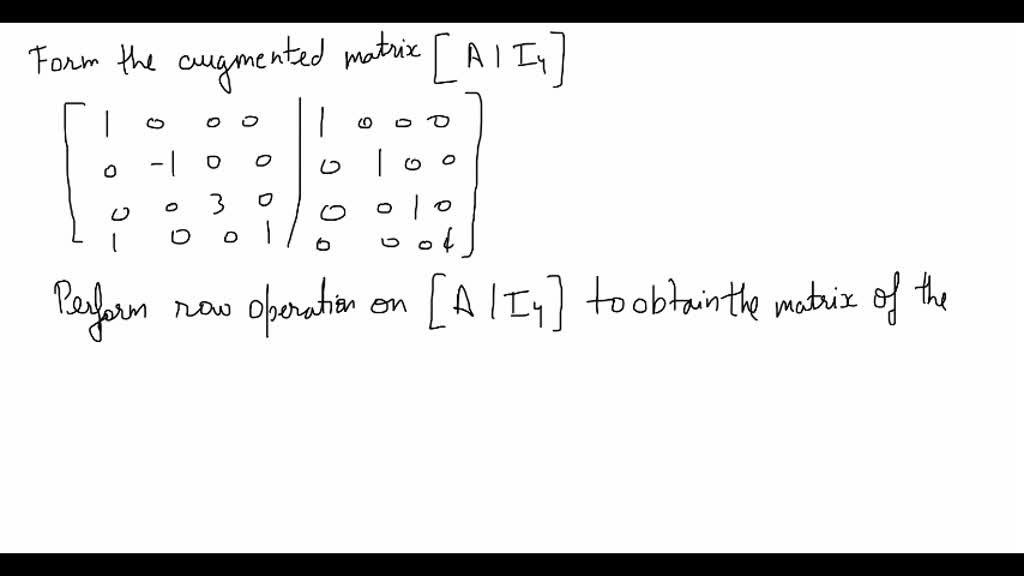 Form the augmented matrix [A | I4]
1 0 0 0 | 1 0 0 0
0 -1 0 0 | 0 1 0 0
0 0 3 0 | 0 0 1 0
1 0 0 1 | 0 0 0 1
Perform row operation on [A | I4] to obtain the matrix of the